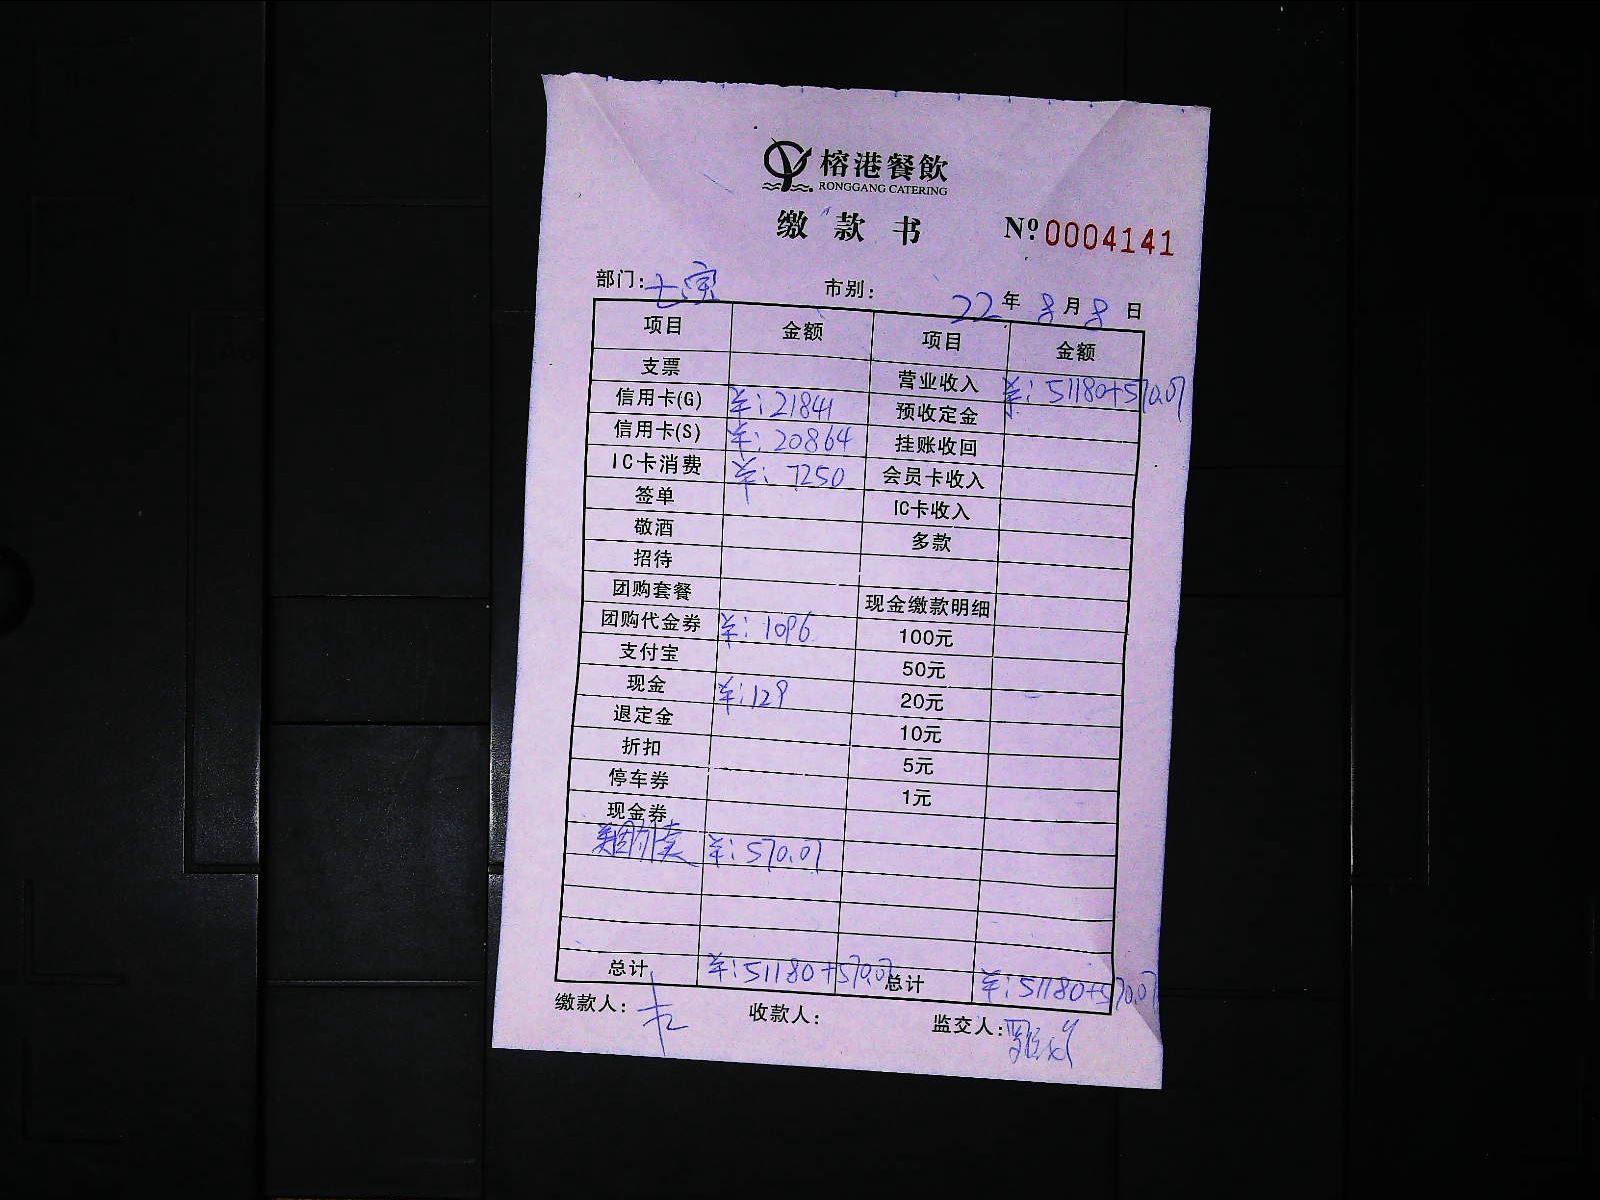 榕港餐飲
RONGGANG CATERING
缴款书 Nº 0004141
部门: 七滨 市别: 22年8月8日
项目 金额 项目 金额
支票 营业收入 ¥:51180+570.07
信用卡(G) ¥:21841 预收定金
信用卡(S) ¥:20864 挂账收回
IC卡消费 ¥:7250 会员卡收入
签单 IC卡收入
敬酒 多款
招待
团购套餐 现金缴款明细
团购代金券 ¥:1096 100元
支付宝 50元
现金 ¥:129 20元
退定金 10元
折扣 5元
停车券 1元
现金券
美团外卖 ¥:570.07
总计 ¥:51180+570.07 总计 ¥:51180+570.07
缴款人: 收款人: 监交人: